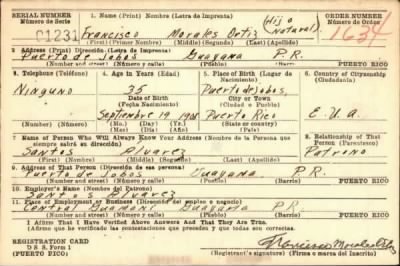 SERIAL NUMBER 1. Name (Print) Nombre (Letra de Imprenta) (Hijo ORDER NUMBER
Número de Serie Natural) Número de Orden
01231 Francisco Morales Ortiz 1634
(First) (Primer Nombre) (Middle) (Segundo) (Last) (Apellido)
2. Address (Print) Dirección (Letra de Imprenta)
Puerto de Jobos Guayama P.R.
(Number and street) (Número y calle) (Pueblo) (Barrio) PUERTO RICO
3. Telephone (Teléfono) 4. Age in Years (Edad) 5. Place of Birth (Lugar de Nacimiento) 6. Country of Citizenship (Ciudadanía)
Ninguno 35 Puerto de Jobos,
Date of Birth City or Town
(Fecha Nacimiento) (Ciudad o Pueblo)
Septiembre 19 Puerto Rico E.U.A.
(Number) (Número) (Mo.) (Mes) (Day) (Día) (Yr.) (Año) (State or country) (Estado o país)
7. Name of Person Who Will Always Know Your Address (Nombre de la Persona que siempre sabrá su dirección) 8. Relationship of That Person (Parentesco)
Santos Alvarez Patrono
(First) (Nombre) (Middle) (Segundo) (Last) (Apellido)
9. Address of That Person (Dirección de esa persona)
Puerto de Jobos Guayama P.R.
(Number and street) (Número y calle) (Pueblo) (Barrio) PUERTO RICO
10. Employer's Name (Nombre del Patrono)
Santos Alvarez
11. Place of Employment or Business (Dirección del empleo o negocio)
Central Guamaní Guayama P.R.
(Number and street) (Número y calle) (Pueblo) (Barrio) PUERTO RICO
I Affirm That I Have Verified Above Answers and That They Are True.
(Afirmo que he verificado las contestaciones que preceden y que todas son ciertas.)
REGISTRATION CARD
D S S. Form 1 Francisco Morales Ortiz
(Puerto Rico) (Registrant's signature) (Firma o marca del Inscrito)